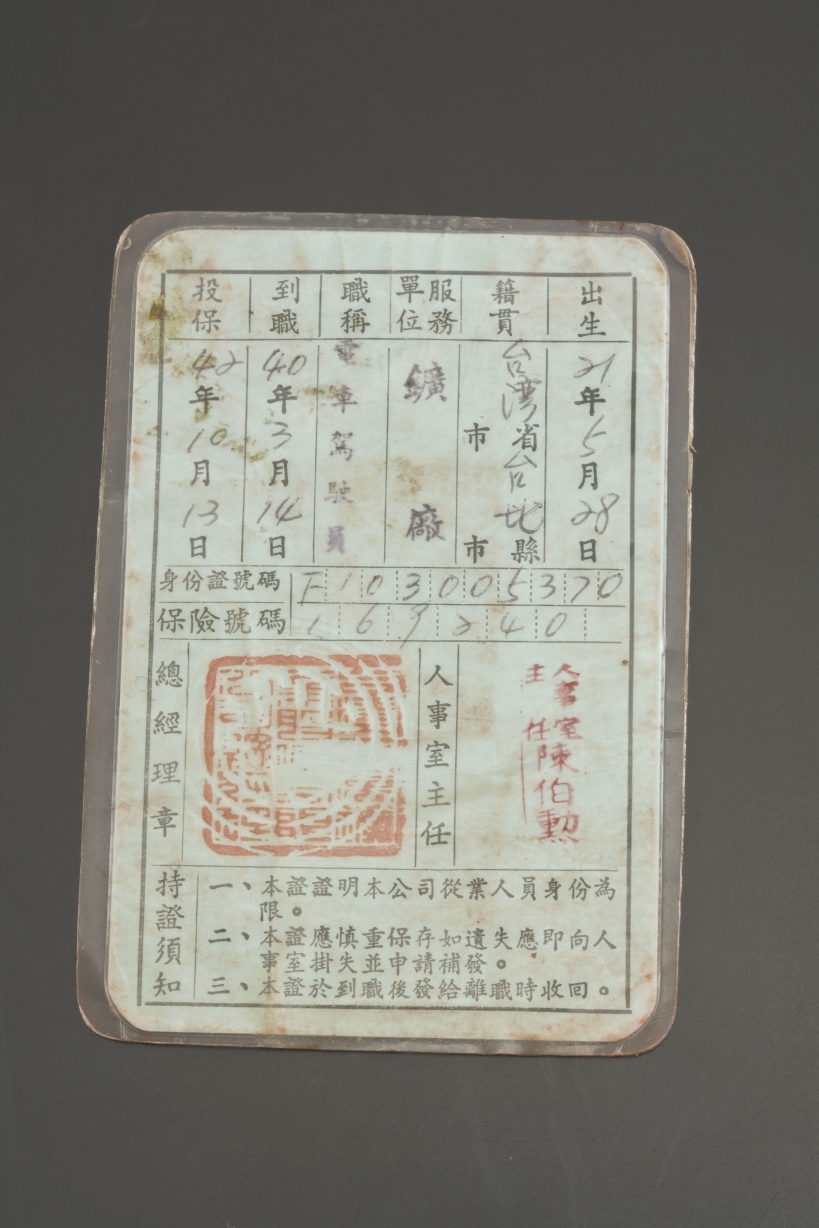 出生
21年5月28日
籍貫
台灣省台北縣
市 市
服務單位
鑛廠
職稱
電車駕駛員
到職
40年3月14日
投保
42年10月13日
身份證號碼 F103005370
保險號碼 169240
總經理章
人事室主任
人事室主任
陳伯勲
持證須知
一、本證證明本公司從業人員身份為
限。
二、本證應慎重保存如遺失應即向人
事室掛失並申請補發。
三、本證於到職後發給離職時收回。